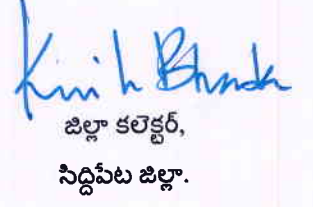 జిల్లా కలెక్టర్,
సిద్దిపేట జిల్లా.